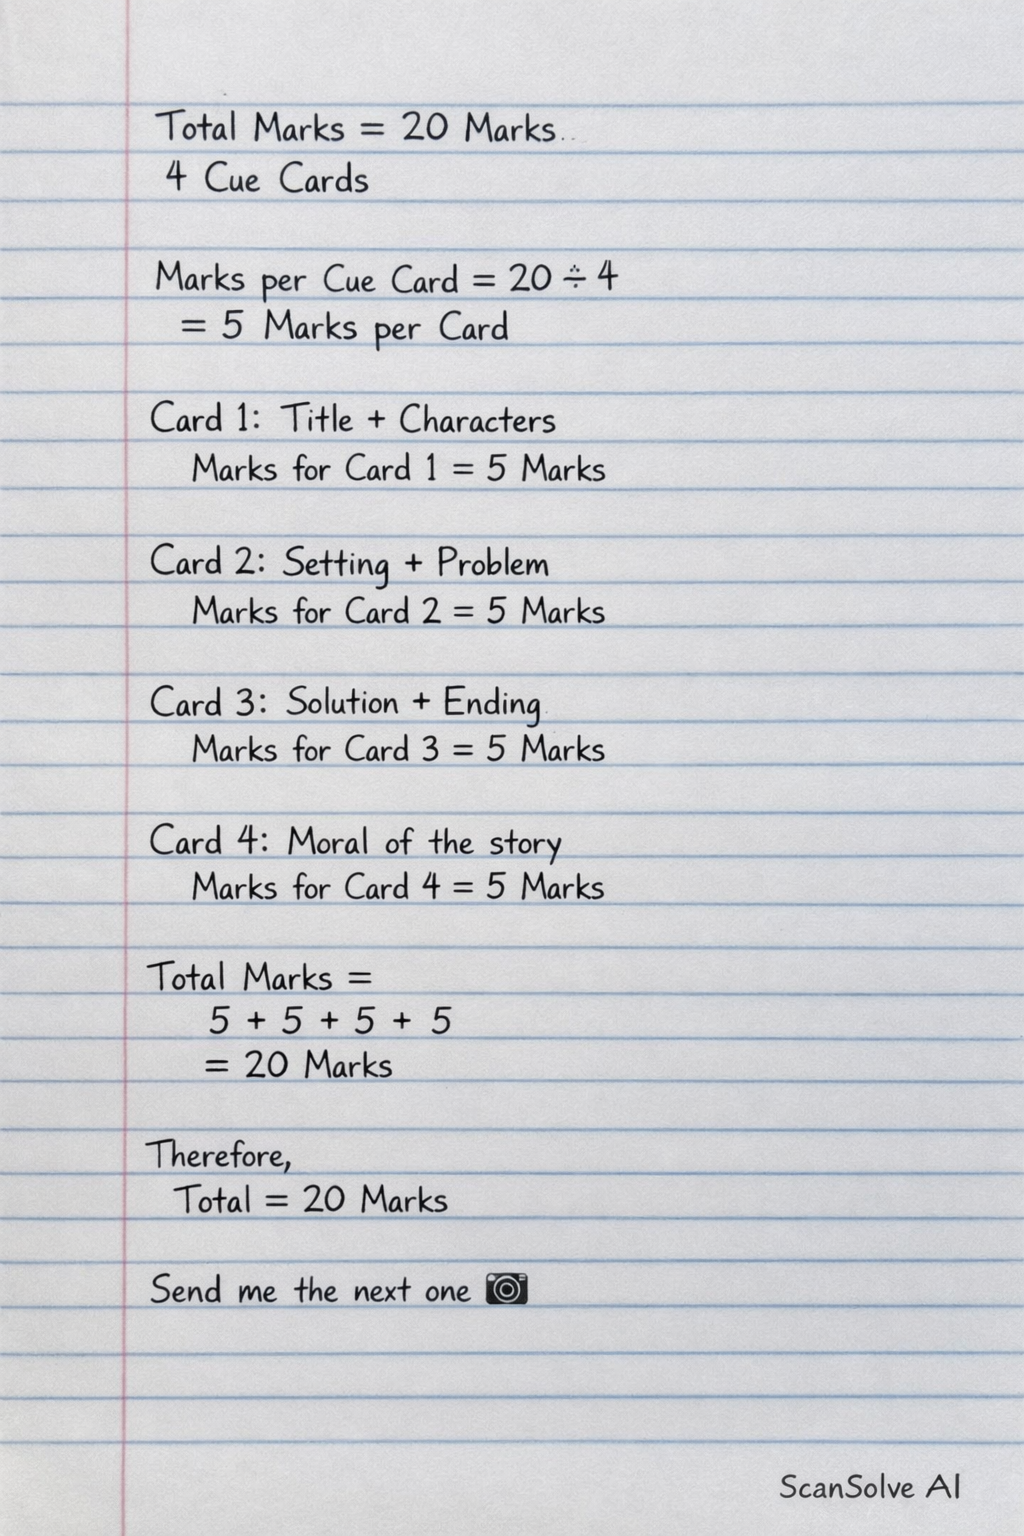 Total Marks = 20 Marks
4 Cue Cards
Marks per Cue Card = 20 ÷ 4
= 5 Marks per Card
Card 1: Title + Characters
Marks for Card 1 = 5 Marks
Card 2: Setting + Problem
Marks for Card 2 = 5 Marks
Card 3: Solution + Ending
Marks for Card 3 = 5 Marks
Card 4: Moral of the story
Marks for Card 4 = 5 Marks
Total Marks =
5 + 5 + 5 + 5
= 20 Marks
Therefore,
Total = 20 Marks
Send me the next one 📷
ScanSolve AI